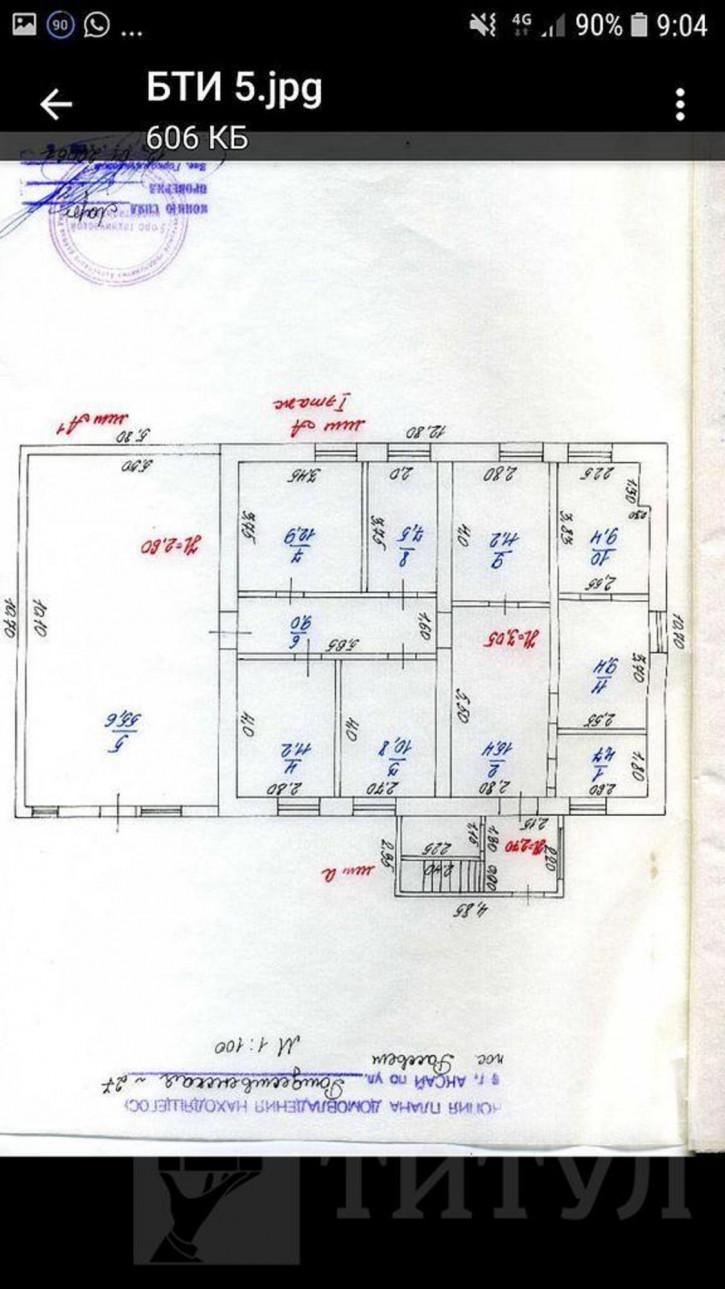 90 ... 4G 90% 9:04
БТИ 5.jpg
606 КБ
КОПИЯ ПЛАНА ДОМОВЛАДЕНИЯ НАХОДЯЩЕГОС
в г. АКСАЙ по ул. Рождественская № 27
пос. Рассвет
М 1:100
4,85
лит а
2.40
0,90
2.20
Н=2.70
2,95
2.25
1.15
1.90
2.15
2.60
1.80
1
4,7
2.80
2
15.4
2.70
3
10,8
2.80
4
11,2
4,0
4,0
5.50
5
55,6
2,55
3,70
11
9,4
Н=3,05
5,65
6
9,0
1.60
10.70
10.10
10.70
2,55
10
9,4
3,83
1,90
2,25
9
11,2
4,0
2,80
8
7,5
3,75
2,0
7
12,9
3,75
3,45
Н=2,60
5,50
12,80
5,80
лит А
I этаж
лит А¹
КОПИЮ СНЯЛ
ПРОВЕРИЛ
ТИТУЛ